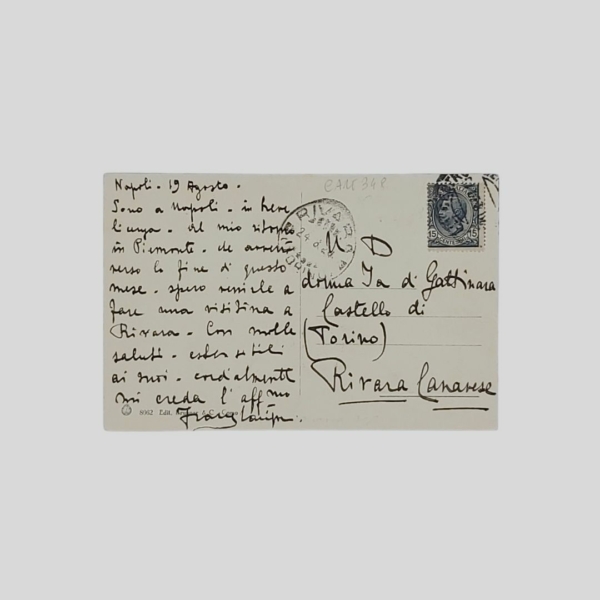 Napoli - 19 Agosto -
Sono a Napoli - in breve
licenza - al mio ritorno
in Piemonte - che avverrà
verso la fine di questo
mese - spero venirle a
fare una visitina a
Rivara - Con molti
saluti - estensibili
ai suoi - cordialmente
mi creda l'aff mo
RIVAROLO
24
N D
donna Ia di Gattinara
Castello di
(Torino)
Rivara Canavese
15 15
8062 Edit.